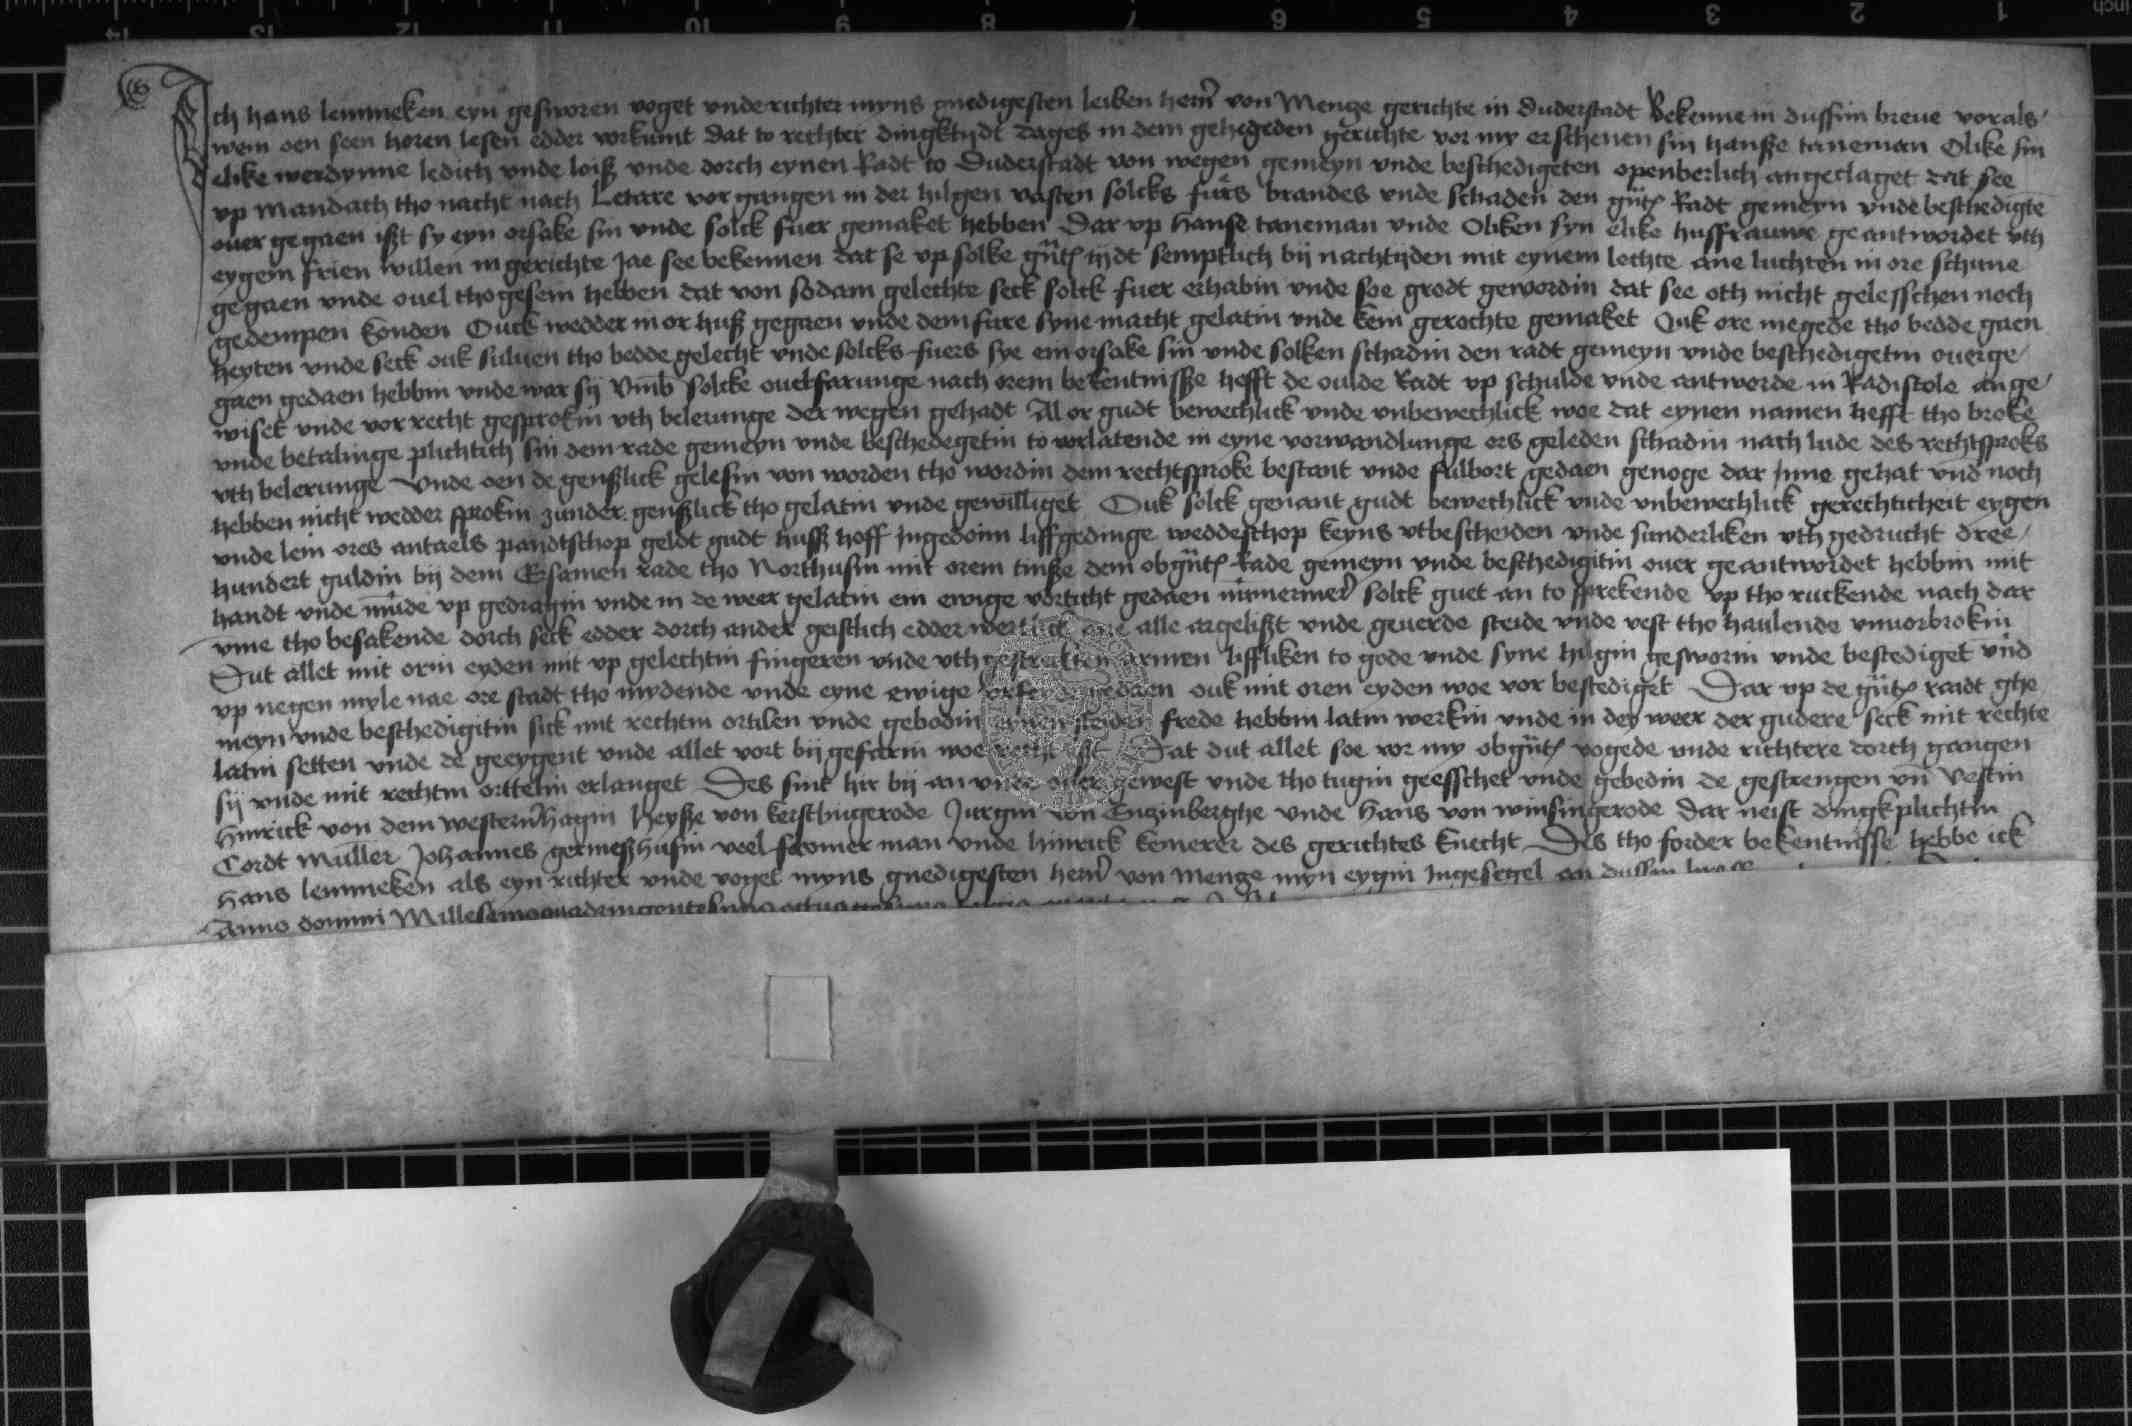 Ich hans lemmeken eyn gesworen voget vnde richter myns gnedigesten leiben hern von Mentze gerichte in duderstadt Bekenne in dussim breue vor als
wem oen seen horen lesen edder vorkumt dat to rechter dingktijdt dages in dem gehegeden gerichte vor my erschenen sin hansze taneman Olike sin
elike werdynne ledich vnde loisz vnde dorch eynen Radt to Duderstadt von wegen gemeyn vnde beschedigeten openberlich angeclaget dat see
vp mandach tho nacht nach Letare vor gangen in der hilgen vasten solcks furs brandes vnde schaden den gnt Radt gemeyn vnde beschedigte
ouer gegaen iszt sy eyn orsake sin vnde solck fuer gemaket hebben Dar vp Hanse taneman vnde Oliken syn elike husfrauwe geantwordet vth
eygem frien willen in gerichte Jae see bekennen dat se vp solke gnt tijdt semptlich bij nachtijden mit eynem lechte ane luchten in ore schune
gegaen vnde ouel tho gesein hebben dat von sodam gelechte seck solck fuer erhabin vnde soe grodt gewordin dat see oth nicht gelesschen noch
gedempen konden Ouck wedder in or husz gegaen vnde dem fure syne macht gelatin vnde kein gerochte gemaket Ouk ore megede tho bedde gaen
heyten vnde seck ouk suluen tho bedde gelecht vnde solcks fuers sye ein orsake sin vnde solken schadin den radt gemeyn vnde beschedigetin ouerge
gaen gedaen hebbin vnde war sij Vmb solcke ouelfarunge nach orem bekentnisze hefft de oulde Radt vp schulde vnde antworde in Radistole ange
wiset vnde vor recht gesprokin vth belerunge der wegen gehadt Al or gudt bewechlick vnde vnbewechlick woe dat eynen namen hefft tho broke
vnde betalinge plichtich sin dem rade gemeyn vnde beschedegetin to vorlatende in eyne vorwandlunge ors geleden schadin nach lude des rechtsproks
vth belerunge Vnde oen de genszlick gelesin von worden tho wordin dem rechtsproke bestant vnde fulbort gedaen genoge dar Inne gehat vnd noch
hebben nicht wedder sprokin zunder genszlick tho gelatin vnde gewilliget Ouk solck genant gudt bewechlick vnde vnbewechlick gerechticheit eygen
vnde lein ores antaels pandtschop geldt gudt husz hoff Ingedoim liffgedinge weddeschop keyns vtbescheiden vnde sunderliken vth gedrucht dree
hundert guldin bij dem Ersamen rade tho Northusin mit orem tinsze dem obgnt Rade gemeyn vnde beschedigitin ouer geantwordet hebbin mit
handt vnde munde vp gedragin vnde in de weer gelatin ein ewige vorticht gedaen nimermer solck guet an to sprekende vp tho ruckende nach dar
vme tho besakende dorch seck edder dorch ander geistlich edder wertlick ane alle argeliszt vnde geuerde steide vnde vest tho haulende vnuorbrokin
Dut allet mit orin eyden mit vp gelechtin fingeren vnde vth gestreckten armen liffliken to gode vnde syne hilgin gesworin vnde bestediget vnd
vp negen myle nae ore stadt tho mydende vnde eyne ewige orfeyde gedaen ouk mit oren eyden woe vor bestediget Dar vp de gnt raadt ghe
meyn vnde beschedigitin sick mit rechtin ortilen vnde gebodin steiden frede hebbin latin werkin vnde in dey weer der gudere seck mit rechte
latin setten vnde de geeygent vnde allet vort bij gefarin woe recht iszt Dat dut allet soe vor my obgnt vogede vnde richtere dorch gangen
sij vnde mit rechtin orttelin erlanget Des sint hir bij an vnde ouer gewest vnde tho tugin geesschet vnde gebedin de gestrengen vn vestin
Hinrick von dem westernhagin Heysze von kerstlingerode Jurgin von Buzinberghe vnde Hans von winsingerode dar neist dingkplichtin
Cordt Muller Johannes germeszhusin veel fromer man vnde hinrick kemerer des gerichtes knecht Des tho forder bekentnisse hebbe ick
Hans lemmeken als eyn richter vnde voget myns gnedigesten hern von mentze myn eygin Ingesegel an dussin
Anno domini Millesimoquadringentesimo
14 13 12 11 10 9 8 7 6 5 4 3 2 1 inch